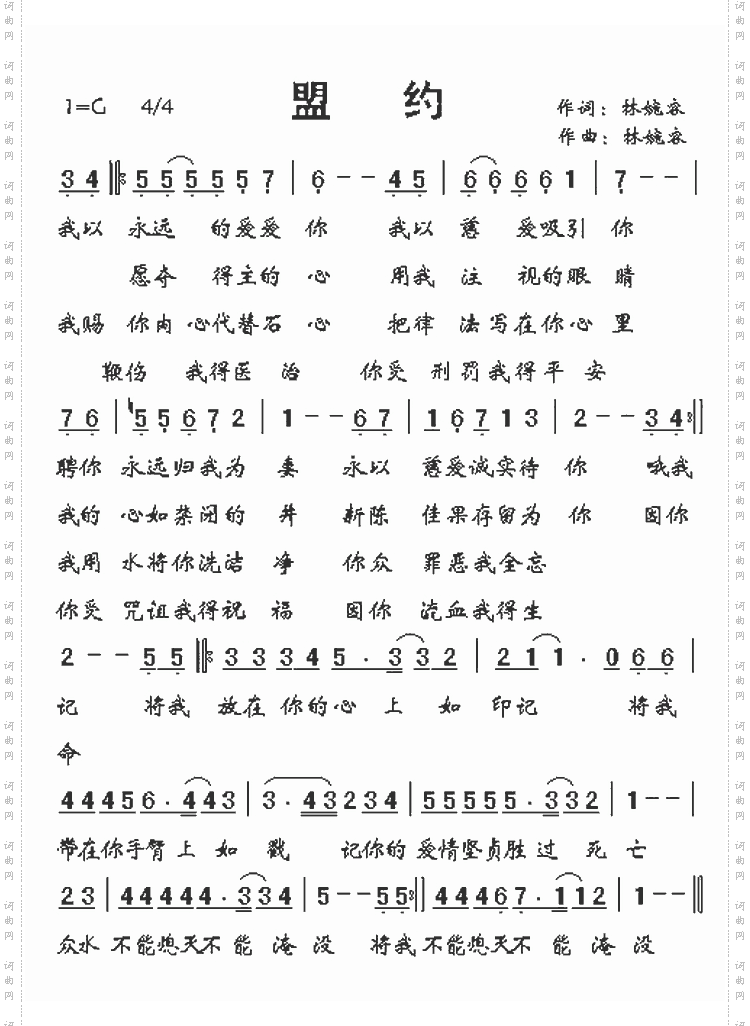 盟 约
1=G 4/4
作词：林婉容
作曲：林婉容
3 4 ‖: 5 5 5 5 5 7 | 6 - - 4 5 | 6 6 6 6 1 | 7 - - |
我以 永远 的爱爱 你 我以 慈 爱吸引 你
愿夺 得主的 心 用我 注 视的眼 睛
我赐 你肉 心代替石 心 把律 法写在你心 里
鞭伤 我得医 治 你受 刑 罚我得平 安
7 6 | 5 5 6 7 2 | 1 - - 6 7 | 1 6 7 1 3 | 2 - - 3 4 :‖
聘你 永远归我为 妻 永以 慈爱诚实待 你 哦我
我的 心如禁闭的 井 新陈 佳果存留为 你 因你
我用 水将你洗洁 净 你众 罪恶我全忘
你受 咒诅我得祝 福 因你 流血我得生
2 - - 5 5 ‖: 3 3 3 4 5 . 3 3 2 | 2 1 1 . 0 6 6 |
记 将我 放在 你的心 上 如 印记 将我
命
4 4 4 5 6 . 4 4 3 | 3 . 4 3 2 3 4 | 5 5 5 5 5 . 3 3 2 | 1 - - |
带在你手臂 上 如 戳 记你的 爱情坚贞胜 过 死 亡
2 3 | 4 4 4 4 4 . 3 3 4 | 5 - - 5 5 :‖ 4 4 4 6 7 . 1 1 2 | 1 - - ‖
众水 不能熄灭不 能 淹 没 将我 不能熄灭不 能 淹 没